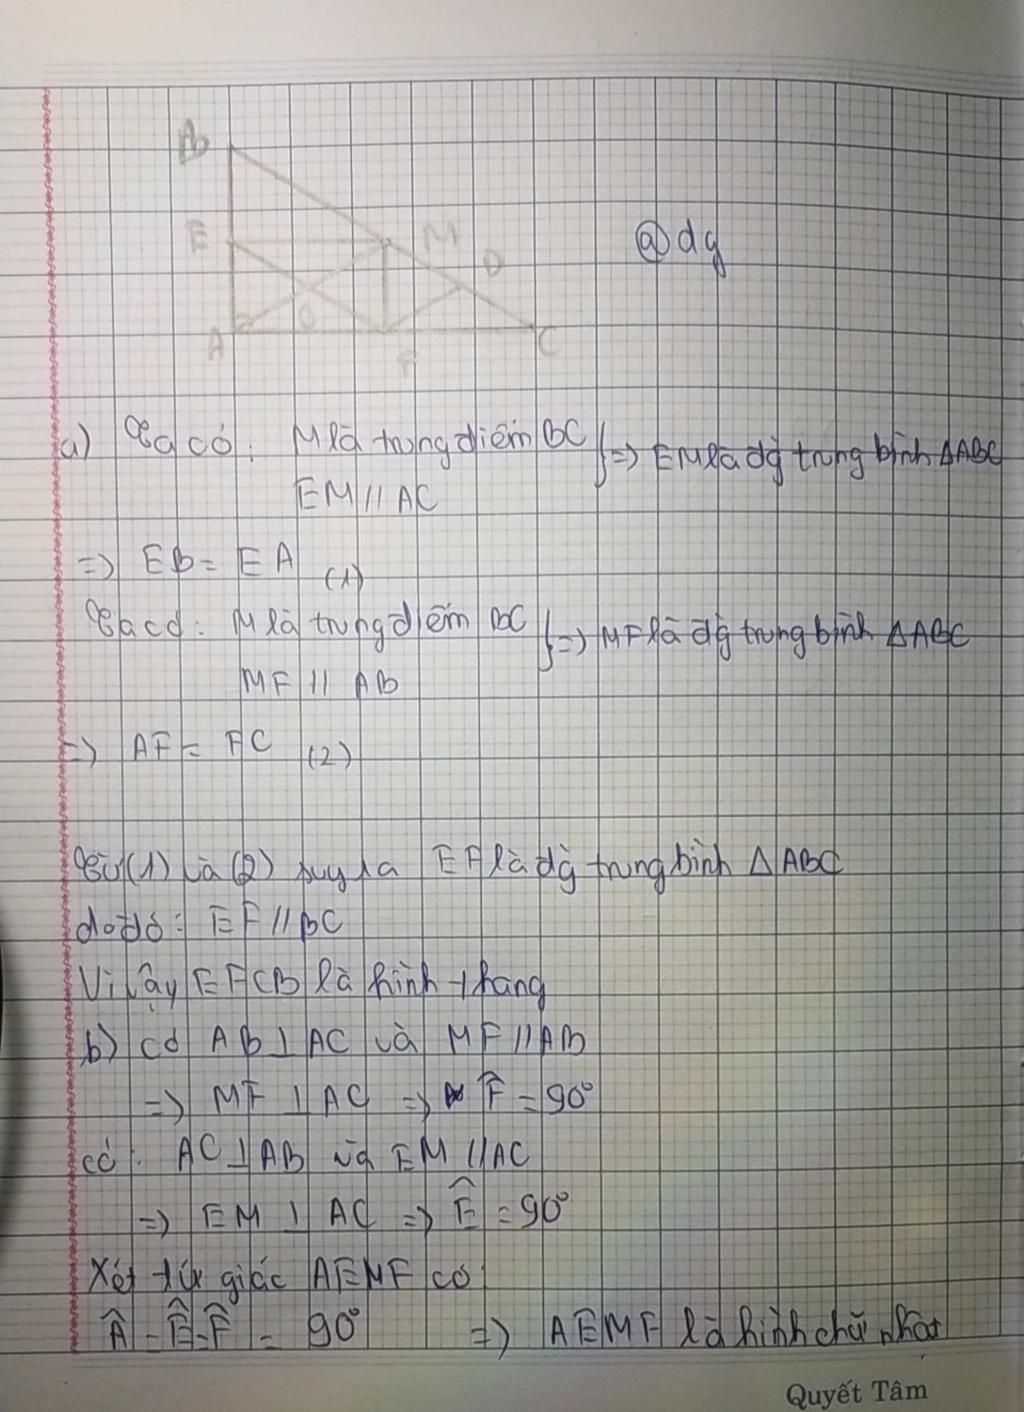 B
E
M
D
@dg
A
O
F
C
a) Ta có: M là trung điểm BC
EM // AC
} => EM là đg trung bình ΔABC
=> EB = EA (1)
Ta có: M là trung điểm BC
MF // AB
} => MF là đg trung bình ΔABC
=> AF = FC (2)
Từ (1) và (2) suy ra EF là đg trung bình ΔABC
do đó: EF // BC
Vì vậy EFCB là hình thang
b) có AB ⊥ AC và MF // AB
=> MF ⊥ AC => F̂ = 90°
có: AC ⊥ AB và EM // AC
=> EM ⊥ AC => Ê = 90°
Xét tứ giác AEMF có:
Â = Ê = F̂ = 90° => AEMF là hình chữ nhật
Quyết Tâm